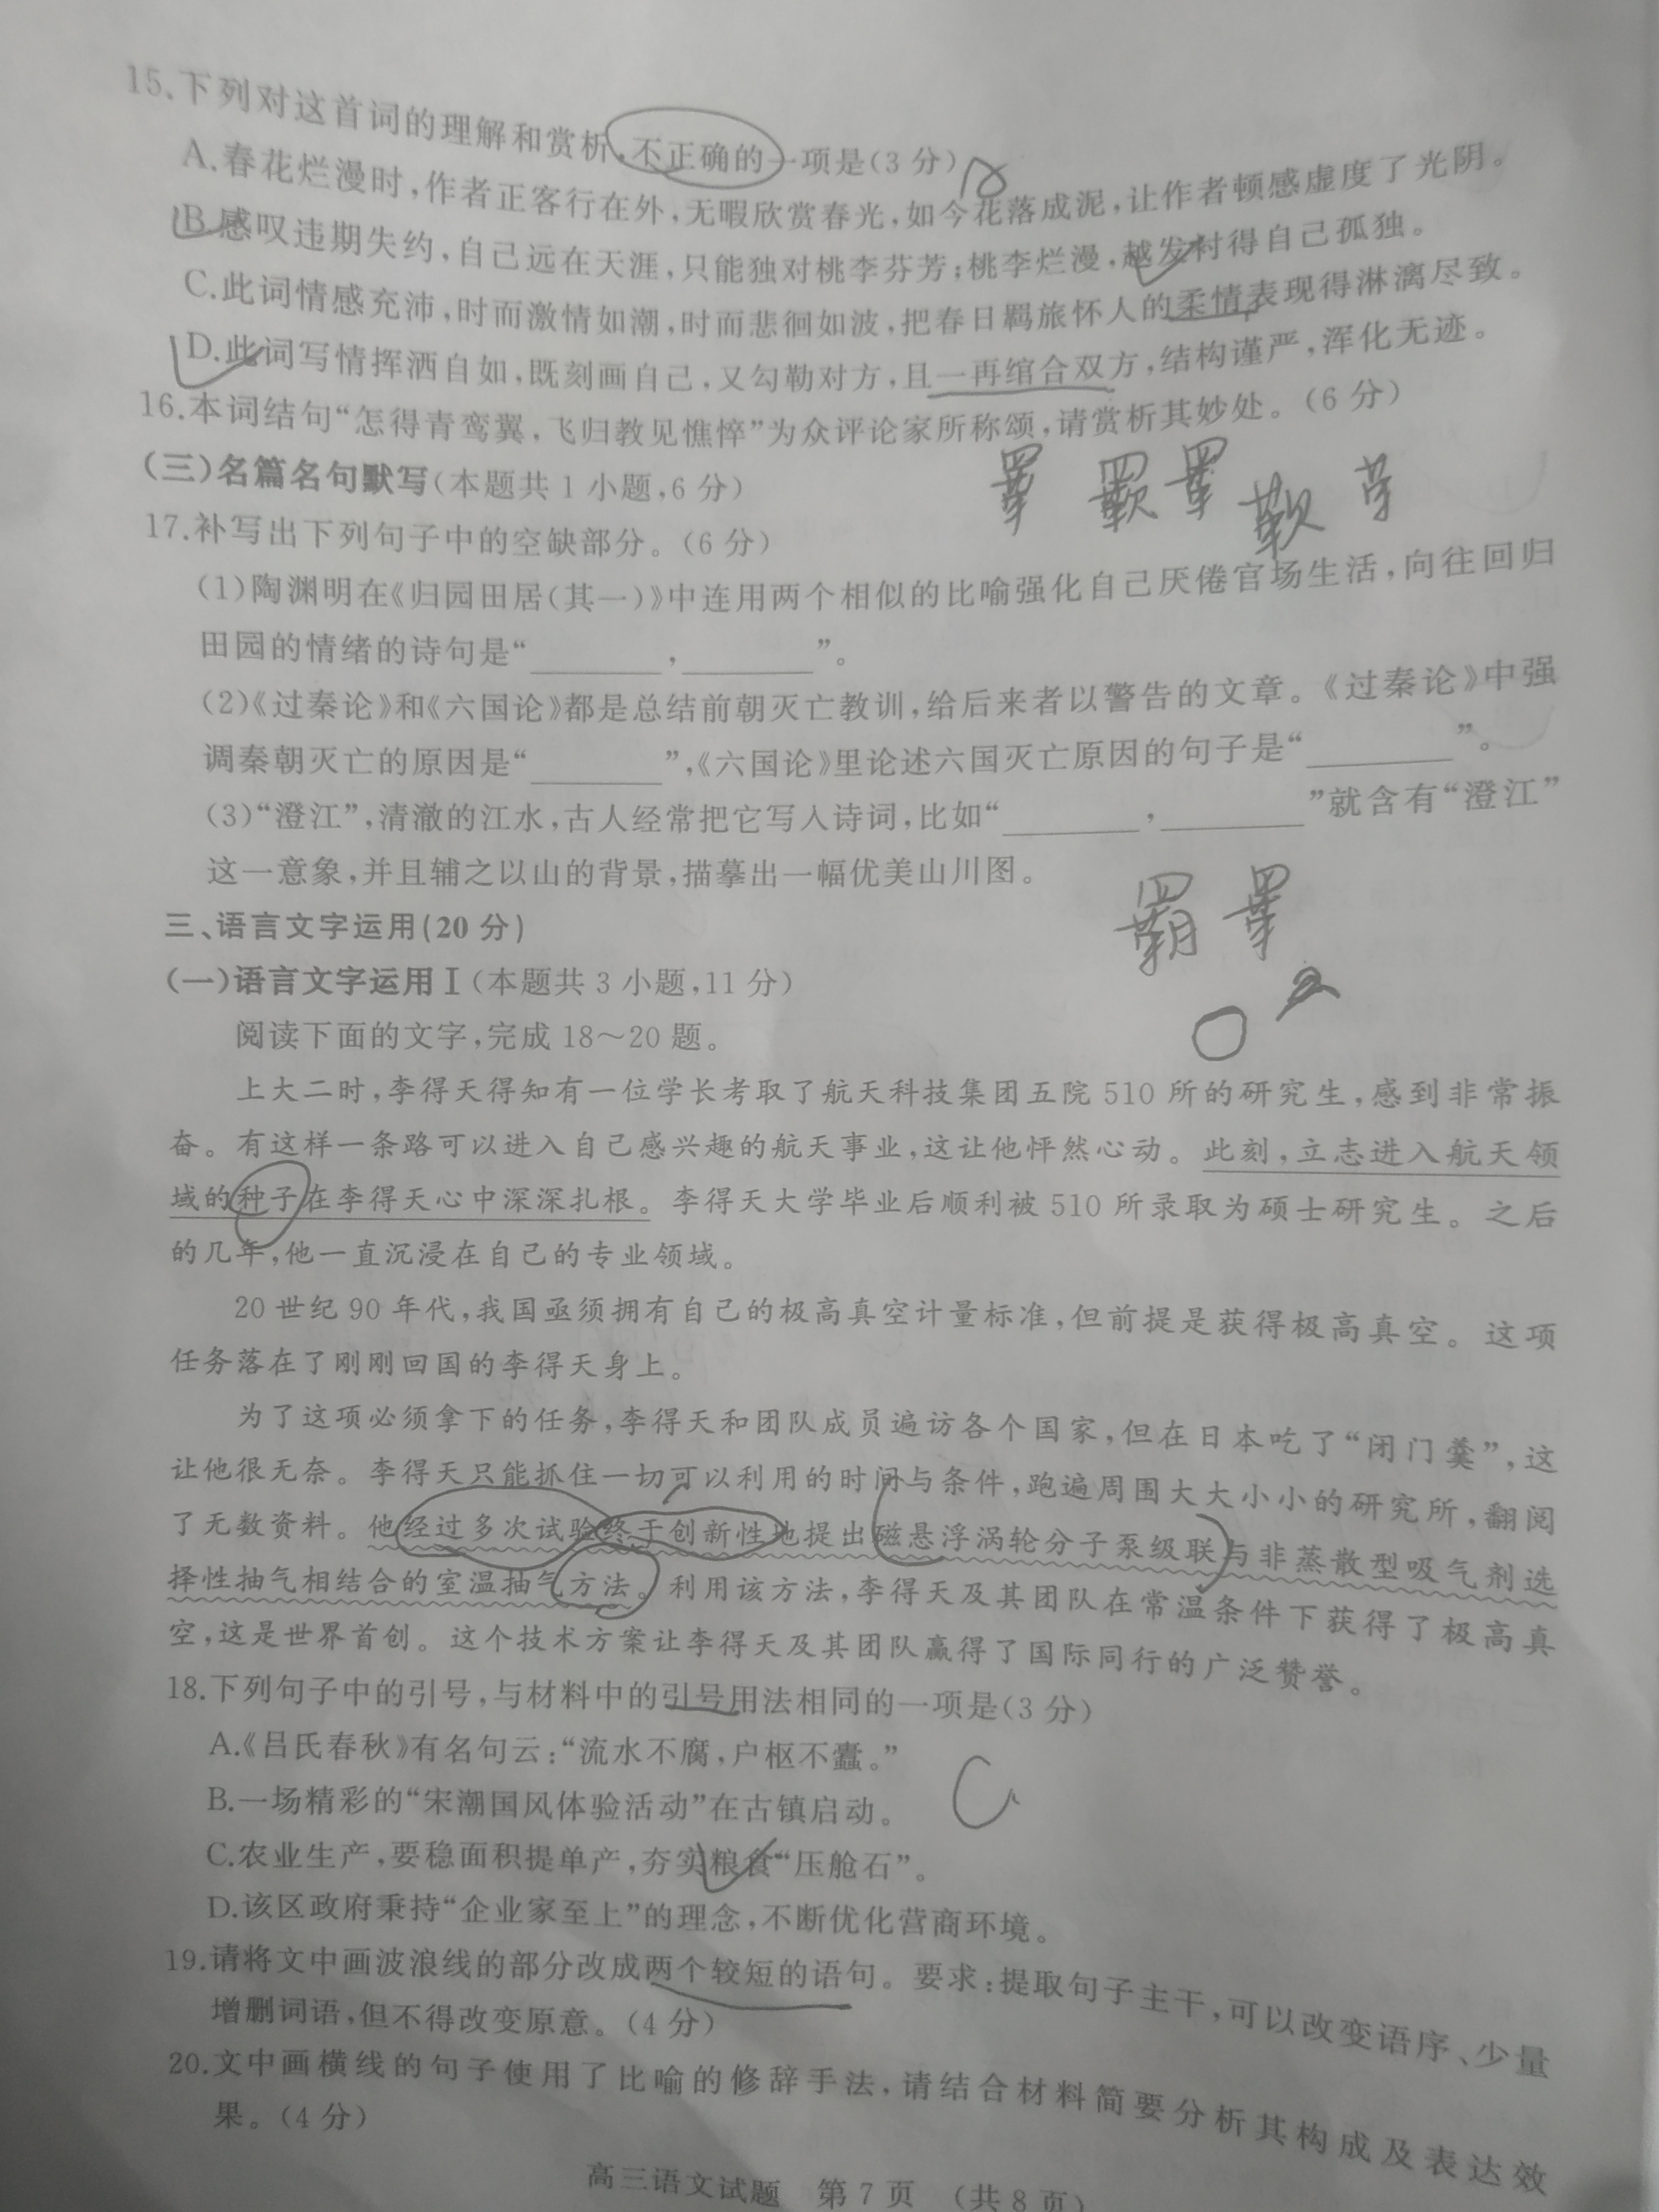 15.下列对这首词的理解和赏析,不正确的一项是(3分)
A.春花烂漫时,作者正客行在外,无暇欣赏春光,如今花落成泥,让作者顿感虚度了光阴。
B.感叹违期失约,自己远在天涯,只能独对桃李芬芳;桃李烂漫,越发衬得自己孤独。
C.此词情感充沛,时而激情如潮,时而悲徊如波,把春日羁旅怀人的柔情表现得淋漓尽致。
D.此词写情挥洒自如,既刻画自己,又勾勒对方,且一再绾合双方,结构谨严,浑化无迹。
16.本词结句“怎得青鸾翼,飞归教见憔悴”为众评论家所称颂,请赏析其妙处。(6分)
(三)名篇名句默写(本题共1小题,6分)
17.补写出下列句子中的空缺部分。(6分)
(1)陶渊明在《归园田居(其一)》中连用两个相似的比喻强化自己厌倦官场生活,向往回归
田园的情绪的诗句是“________,________”。
(2)《过秦论》和《六国论》都是总结前朝灭亡教训,给后来者以警告的文章。《过秦论》中强
调秦朝灭亡的原因是“________”,《六国论》里论述六国灭亡原因的句子是“________”。
(3)“澄江”,清澈的江水,古人经常把它写入诗词,比如“________,________”就含有“澄江”
这一意象,并且辅之以山的背景,描摹出一幅优美山川图。
三、语言文字运用(20分)
(一)语言文字运用Ⅰ(本题共3小题,11分)
阅读下面的文字,完成18～20题。
上大二时,李得天得知有一位学长考取了航天科技集团五院510所的研究生,感到非常振
奋。有这样一条路可以进入自己感兴趣的航天事业,这让他怦然心动。此刻,立志进入航天领
域的种子在李得天心中深深扎根。李得天大学毕业后顺利被510所录取为硕士研究生。之后
的几年,他一直沉浸在自己的专业领域。
20世纪90年代,我国亟须拥有自己的极高真空计量标准,但前提是获得极高真空。这项
任务落在了刚刚回国的李得天身上。
为了这项必须拿下的任务,李得天和团队成员遍访各个国家,但在日本吃了“闭门羹”,这
让他很无奈。李得天只能抓住一切可以利用的时间与条件,跑遍周围大大小小的研究所,翻阅
了无数资料。他经过多次试验终于创新性地提出磁悬浮涡轮分子泵级联与非蒸散型吸气剂选
择性抽气相结合的室温抽气方法。利用该方法,李得天及其团队在常温条件下获得了极高真
空,这是世界首创。这个技术方案让李得天及其团队赢得了国际同行的广泛赞誉。
18.下列句子中的引号,与材料中的引号用法相同的一项是(3分)
A.《吕氏春秋》有名句云:“流水不腐,户枢不蠹。”
B.一场精彩的“宋潮国风体验活动”在古镇启动。
C.农业生产,要稳面积提单产,夯实粮食“压舱石”。
D.该区政府秉持“企业家至上”的理念,不断优化营商环境。
19.请将文中画波浪线的部分改成两个较短的语句。要求:提取句子主干,可以改变语序、少量
增删词语,但不得改变原意。(4分)
20.文中画横线的句子使用了比喻的修辞手法,请结合材料简要分析其构成及表达效
果。(4分)
高三语文试题 第7页 (共8页)